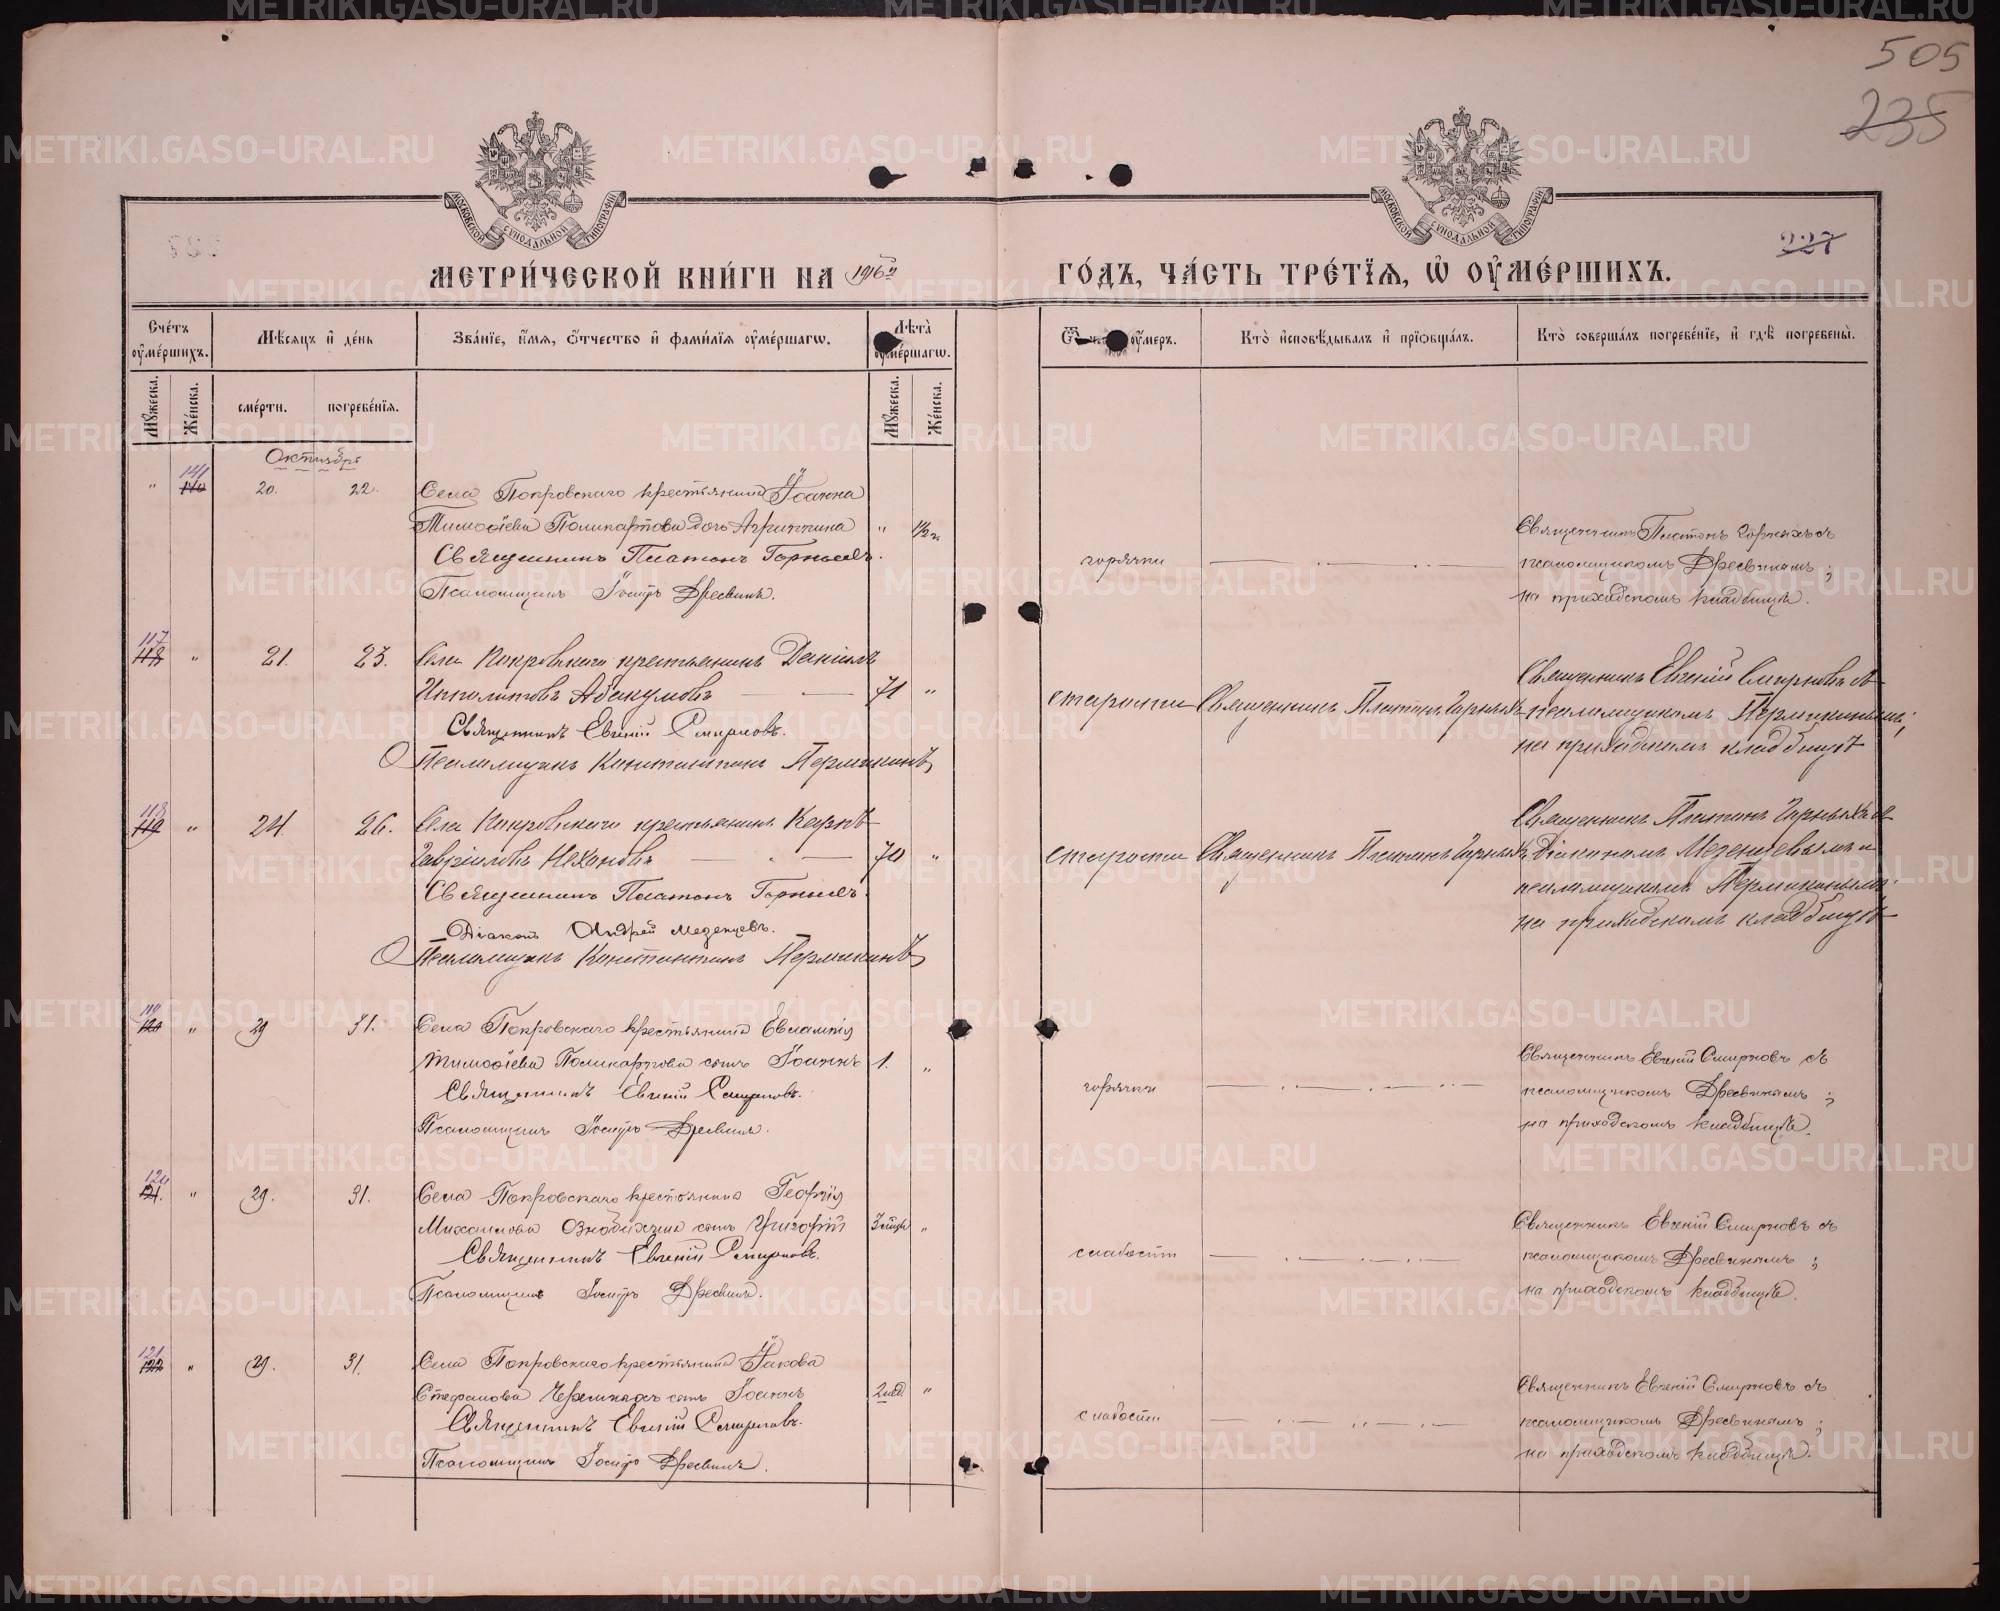 505
235
227
МОСКОВСКОЙ СѴНОДАЛЬНОЙ ТИПОГРАФІИ
МОСКОВСКОЙ СѴНОДАЛЬНОЙ ТИПОГРАФІИ
МЕТРИ́ЧЕСКОЙ КНИ́ГИ НА 1916й ГО́ДЪ, ЧА́СТЬ ТРЕ́ТІЯ, Ѡ ОУ҆МЕ́РШИХЪ.
Сче́тъ оу҆ме́ршихъ.
Мѣ́сяцъ и҆ де́нь
Зва́ніе, и҆́мя, ѻ҆́тчество и҆ фами́лія оу҆ме́ршагѡ.
Лѣ́та оу҆ме́ршагѡ.
оу҆́меръ.
Кто̀ и҆сповѣ́дывалъ и҆ прїѡбща́лъ.
Кто̀ соверша́лъ погребе́ніе, и҆ гдѣ̀ погребены̀.
Му́жеска.
Же́нска.
сме́рти.
погребе́нїя.
Му́жеска.
Же́нска.
Октябрь
" 141 140 20. 22. Села Покровскаго крестьянина Іоанна
Тимоѳеева Поликарпова дочь Агриппина " 1/2 г.
Священникъ Платонъ Горныхъ.
Псаломщикъ Іосифъ Дресвинъ.
горячки
Священникъ Платонъ Горныхъ съ
псаломщикомъ Дресвинымъ;
на приходскомъ кладбищѣ.
117 118 " 21. 23. Села Покровскаго крестьянинъ Даніилъ
Ипполитовъ Абакумовъ 71 "
Священникъ Евгеній Смирновъ.
Псаломщикъ Константинъ Пермикинъ
старости Священникъ Платонъ Горныхъ
Священникъ Евгеній Смирновъ съ
псаломщикомъ Пермикинымъ;
на приходскомъ кладбищѣ
118 119 " 24. 26. Села Покровскаго крестьянинъ Карпъ
Гавріиловъ Нехоновъ 70 "
Священникъ Платонъ Горныхъ.
Діаконъ Андрей Мезенцевъ.
Псаломщикъ Константинъ Пермикинъ
старости Священникъ Платонъ Горныхъ
Священникъ Платонъ Горныхъ съ
діакономъ Мезенцевымъ и
псаломщикомъ Пермикинымъ;
на приходскомъ кладбищѣ
119 120 " 29 31. Села Покровскаго крестьянина Евлампія
Тимоѳеева Поликарпова сынъ Іоаннъ 1. "
Священникъ Евгеній Смирновъ.
Псаломщикъ Іосифъ Дресвинъ.
горячки
Священникъ Евгеній Смирновъ съ
псаломщикомъ Дресвинымъ;
на приходскомъ кладбищѣ.
120 121. " 29. 31. Села Покровскаго крестьянина Георгія
Михаилова Ознобихина сынъ Григорій "
Священникъ Евгеній Смирновъ.
Псаломщикъ Іосифъ Дресвинъ.
слабости
Священникъ Евгеній Смирновъ съ
псаломщикомъ Дресвинымъ;
на приходскомъ кладбищѣ.
121 122 " 29. 31. Села Покровскаго крестьянина Іакова
Стефанова Черемныхъ сынъ Іоаннъ 2 нед. "
Священникъ Евгеній Смирновъ.
Псаломщикъ Іосифъ Дресвинъ.
слабости
Священникъ Евгеній Смирновъ съ
псаломщикомъ Дресвинымъ;
на приходскомъ кладбищѣ.
METRIKI.GASO-URAL.RU